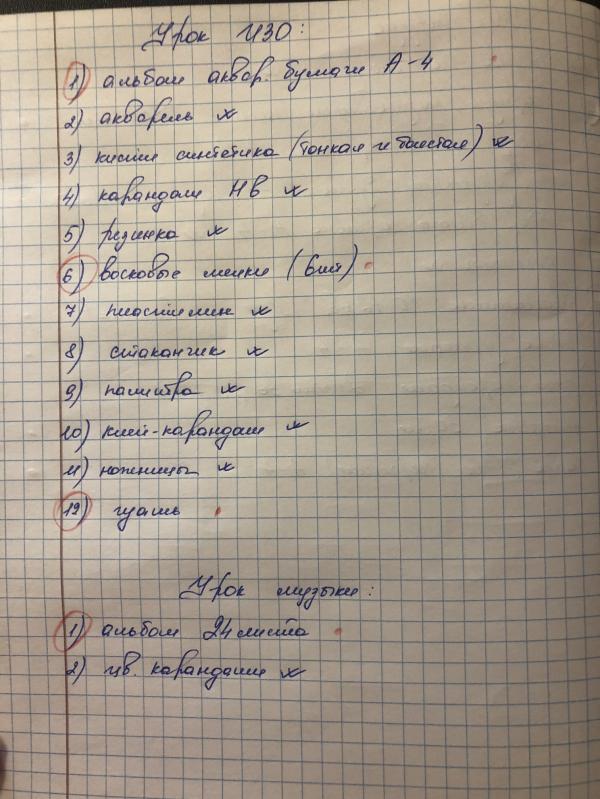 Урок ИЗО:
1) альбом аквар. бумаги А-4
2) акварель x
3) кисти синтетика (тонкая и толстая) x
4) карандаш НВ x
5) резинка x
6) восковые мелки (6шт)
7) пластилин x
8) стаканчик x
9) палитра x
10) клей-карандаш x
11) ножницы x
12) гуашь
Урок музыки:
1) альбом 24 листа
2) цв. карандаши x